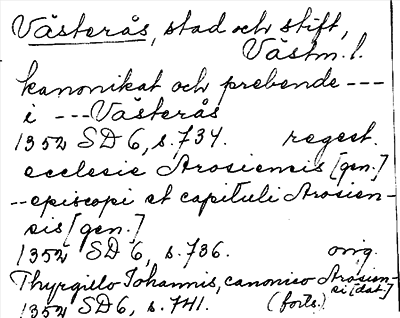 Västerås, stad och stift,
Västm. l.
kanonikat och prebende ---
i --- Västerås
1352 SD 6, s. 734. regest.
ecclesie Arosiensis [gen.]
-- episcopi et capituli Arosien-
sis [gen.]
1352 SD 6, s. 736. orig.
Thyrgillo Iohannis, canonico Arosien-
si [dat.]
1352 SD 6, s. 741. (forts.)